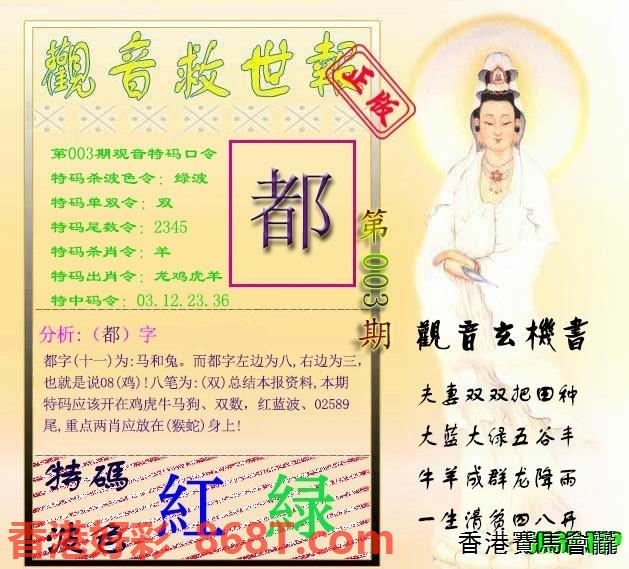 觀音救世報
正版
第003期观音特码口令
特码杀波色令：绿波
特码单双令：双
特码尾数令：2345
特码杀肖令：羊
特码出肖令：龙鸡虎羊
特中码令：03.12.23.36
都
第003期
分析:（都）字
都字(十一)为:马和兔。而都字左边为八,右边为三，
也就是说08(鸡)!八笔为:(双)总结本报资料,本期
特码应该开在鸡虎牛马狗、双数，红蓝波、02589
尾,重点两肖应放在(猴蛇)身上!
特碼
波色
紅 绿
觀音玄機書
夫妻双双把田种
大蓝大绿五谷丰
牛羊成群龙降雨
一生清贫四八开
香港好彩 868T.com
香港賽馬會